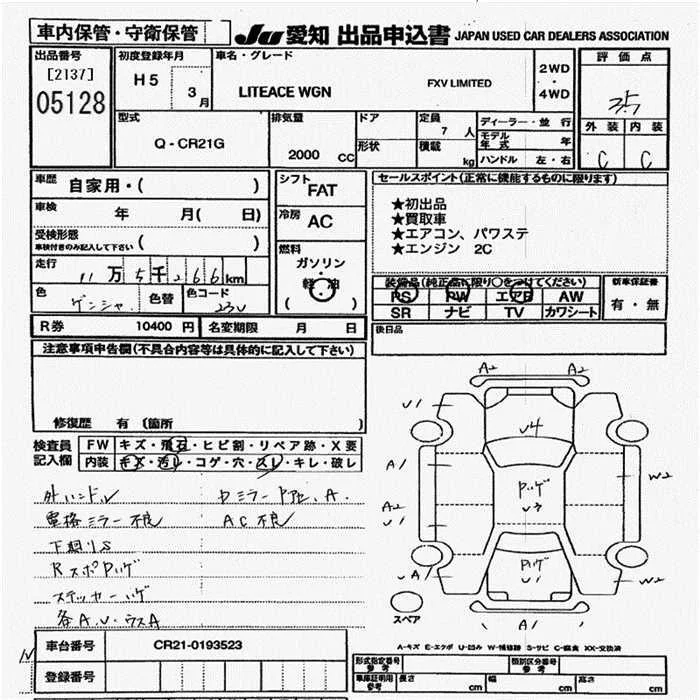 車内保管・守衛保管
JU 愛知 出品申込書 JAPAN USED CAR DEALERS ASSOCIATION
出品番号
[2137]
05128
初度登録年月
H5 3月
車名・グレード
LITEACE WGN FXV LIMITED
2WD
・
4WD
評価点
3.5
外装 内装
C C
型式
Q - CR21G
排気量
2000 CC
ドア
形状
定員 7 人
積載 kg
ディーラー・並行
モデル年式 年
ハンドル 左・右
車歴 自家用・( )
車検 年 月( 日)
受検形態
車検付きのみ記入して下さい ( )
走行 11万5千266km
色 ゲンシャ 色替 色コード 23V
シフト
FAT
冷房
AC
燃料
ガソリン・
軽油
( )
セールスポイント(正常に機能するものに限ります)
★初出品
★買取車
★エアコン、パワステ
★エンジン 2C
装備品(純正品に限り○をつけてください)
PS PW エアB AW
SR ナビ TV カワシート
新車保証書
有・無
R券 10400 円 名変期限 月 日
後日品
注意事項申告欄(不具合内容等は具体的に記入して下さい)
修復歴 有 (箇所 )
検査員
記入欄
FW キズ・飛石・ヒビ割・リペア跡・X要
内装 キズ・汚レ・コゲ・穴・スレ・キレ・破レ
電格ミラー不良 AC不良
下廻りS
ステッカーハゲ
各A.U.ウスA
A2 A2
U1
U4
A1
W2
ハゲ
U3
A2
U1
ハゲ
U1
UA
W2
A1
スペア
A-キズ E-エクボ U-凹み W-補修跡 S-サビ C-腐食 XX-交換済
車台番号 CR21-0193523
登録番号
形式指定番号
参考
類別区分番号
参考
車庫証明用
参考
長さ cm 幅 cm 高さ cm